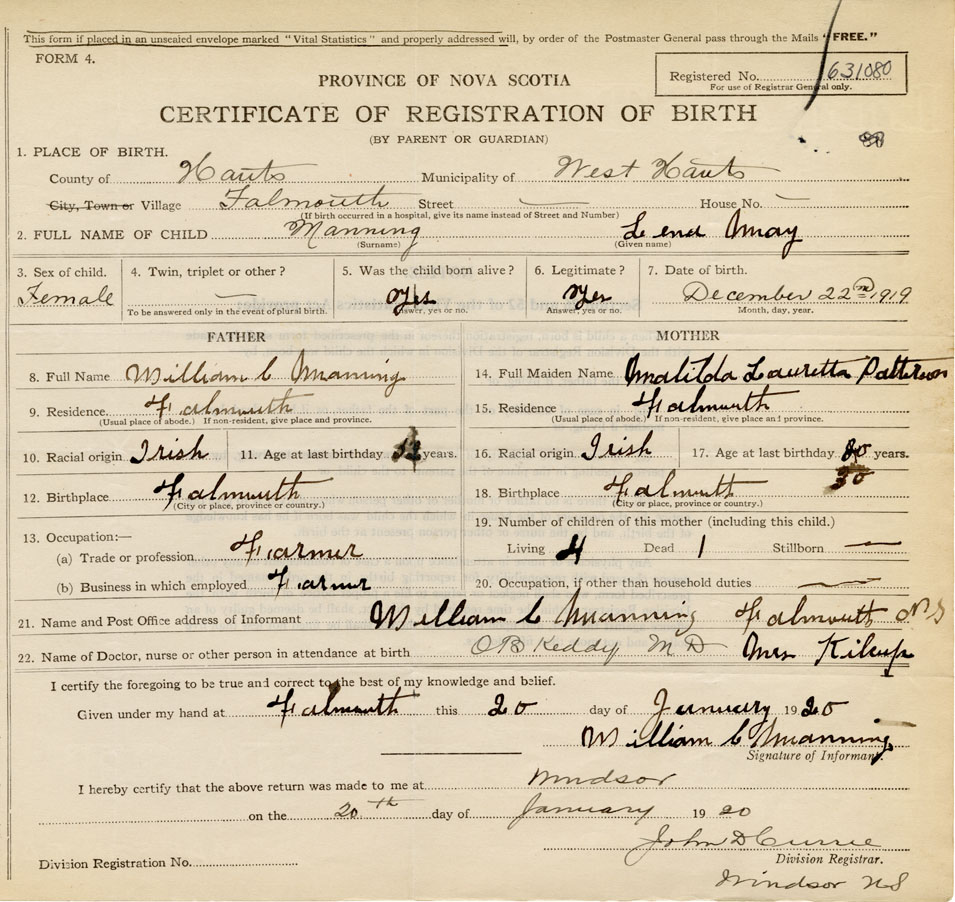 This form if placed in an unsealed envelope marked "Vital Statistics" and properly addressed will, by order of the Postmaster General pass through the Mails "FREE."
FORM 4.
Registered No. 631080
For use of Registrar General only.
PROVINCE OF NOVA SCOTIA
CERTIFICATE OF REGISTRATION OF BIRTH
(BY PARENT OR GUARDIAN)
1. PLACE OF BIRTH.
County of Hants Municipality of West Hants
City, Town or Village Falmouth Street — House No. —
(If birth occurred in a hospital, give its name instead of Street and Number)
2. FULL NAME OF CHILD Manning Lena May
(Surname) (Given name)
3. Sex of child. 4. Twin, triplet or other? 5. Was the child born alive? 6. Legitimate? 7. Date of birth.
Female — Yes Yes December 22nd 1919
To be answered only in the event of plural birth. Answer, yes or no. Answer, yes or no. Month, day, year.
FATHER MOTHER
8. Full Name William C Manning 14. Full Maiden Name Matilda Lauretta Patterson
9. Residence. Falmouth 15. Residence Falmouth
(Usual place of abode.) If non-resident, give place and province. (Usual place of abode.) If non-resident, give place and province.
10. Racial origin Irish 11. Age at last birthday years. 16. Racial origin Irish 17. Age at last birthday years.
30
12. Birthplace Falmouth 18. Birthplace Falmouth
(City or place, province or country.) (City or place, province or country.)
13. Occupation:— 19. Number of children of this mother (including this child.)
(a) Trade or profession Farmer Living 4 Dead 1 Stillborn —
(b) Business in which employed Farmer 20. Occupation, if other than household duties —
21. Name and Post Office address of Informant William C Manning Falmouth N S
22. Name of Doctor, nurse or other person in attendance at birth O B Keddy M D Mrs Kilcup
I certify the foregoing to be true and correct to the best of my knowledge and belief.
Given under my hand at Falmouth this 20 day of January 1920
William C Manning
Signature of Informant.
I hereby certify that the above return was made to me at Windsor
on the 20th day of January 1920
John D Currie
Division Registration No. Division Registrar.
Windsor N S